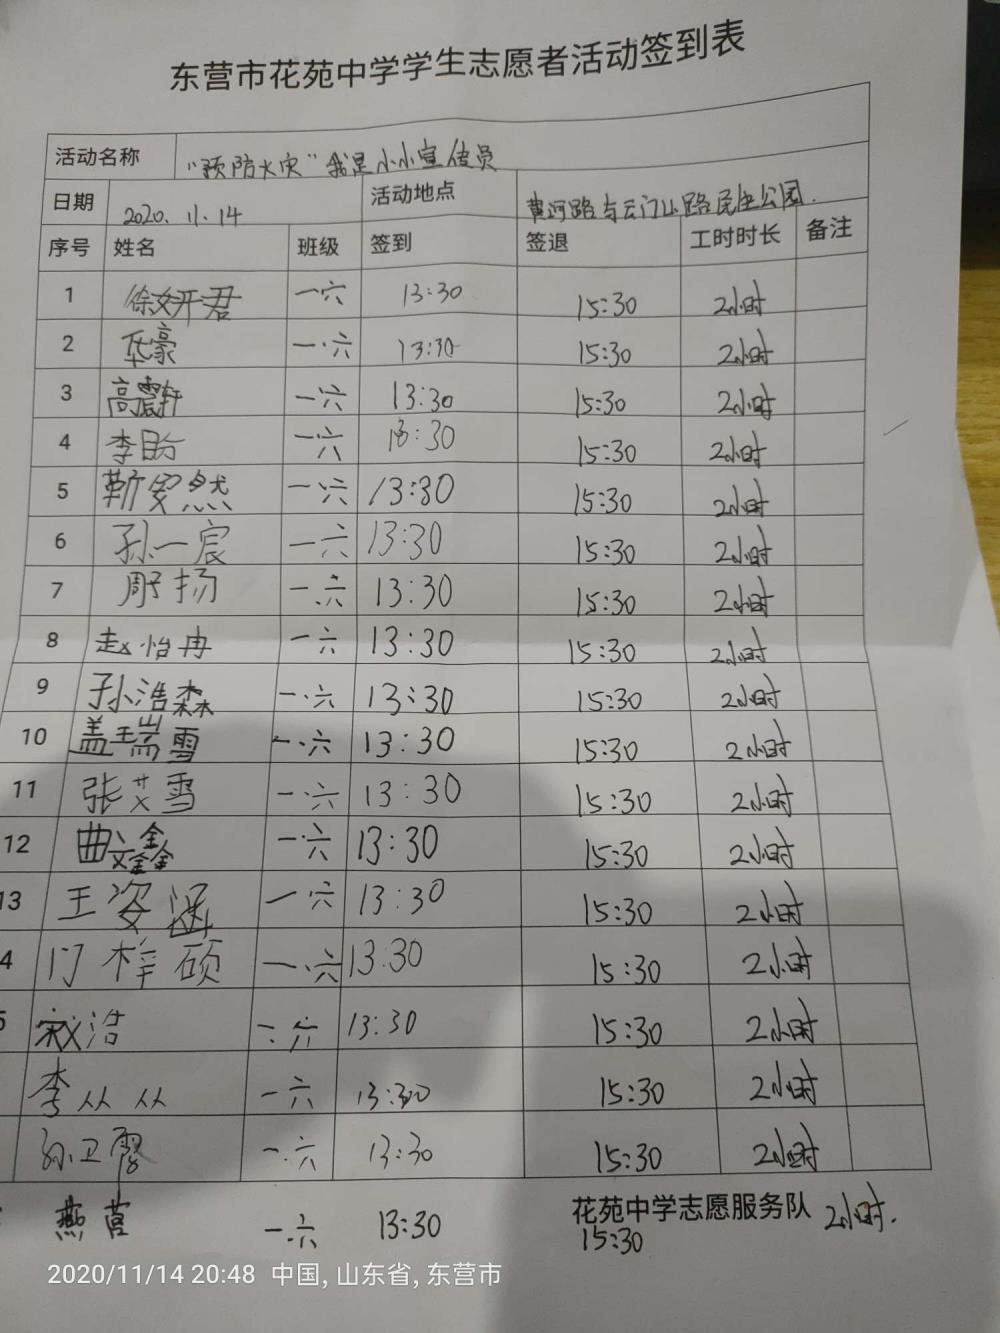 东营市花苑中学学生志愿者活动签到表
活动名称 “预防火灾”我是小小宣传员
日期 2020.11.14 活动地点 黄河路与云门山路民生公园.
序号 姓名 班级 签到 签退 工时时长 备注
1 徐妍君 一.六 13:30 15:30 2小时
2 华豪 一.六 13:30 15:30 2小时
3 高震轩 一.六 13:30 15:30 2小时
4 李盼 一.六 13:30 15:30 2小时
5 靳安然 一.六 13:30 15:30 2小时
6 孙一宸 一六 13:30 15:30 2小时
7 扬 一.六 13:30 15:30 2小时
8 赵怡冉 一六 13:30 15:30 2小时
9 孙浩森 一.六 13:30 15:30 2小时
10 盖瑞雪 一.六 13:30 15:30 2小时
11 张艾雪 一.六 13:30 15:30 2小时
12 曲文鑫 一.六 13:30 15:30 2小时
13 王姿涵 一.六 13:30 15:30 2小时
4 门梓硕 一.六 13:30 15:30 2小时
5 浩 一.六 13:30 15:30 2小时
李从从 一.六 13:30 15:30 2小时
孙卫馨 一.六 13:30 15:30 2小时
花苑中学志愿服务队
燕营 一.六 13:30 15:30 2小时.
2020/11/14 20:48 中国, 山东省, 东营市